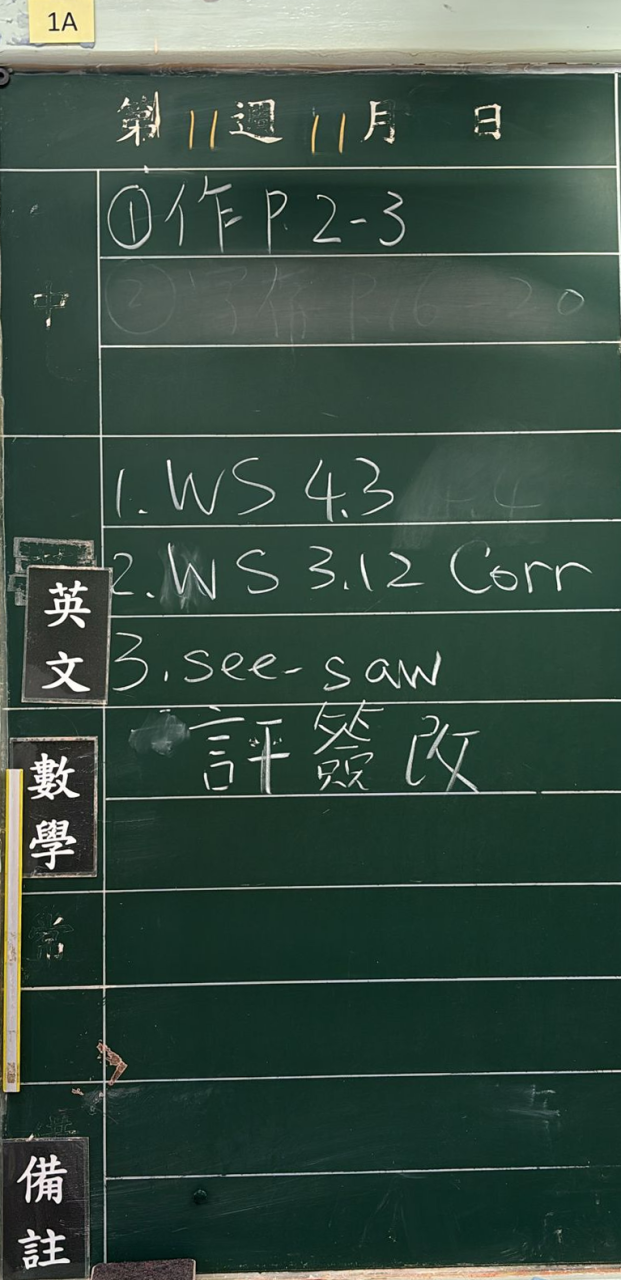 1A
第 11 週 11 月 日
中
①作 P. 2-3
②字布 P.16-20
英文
1. WS 4.3
2. WS 3.12 Corr
3. see-saw
數學
評簽改
常
備註